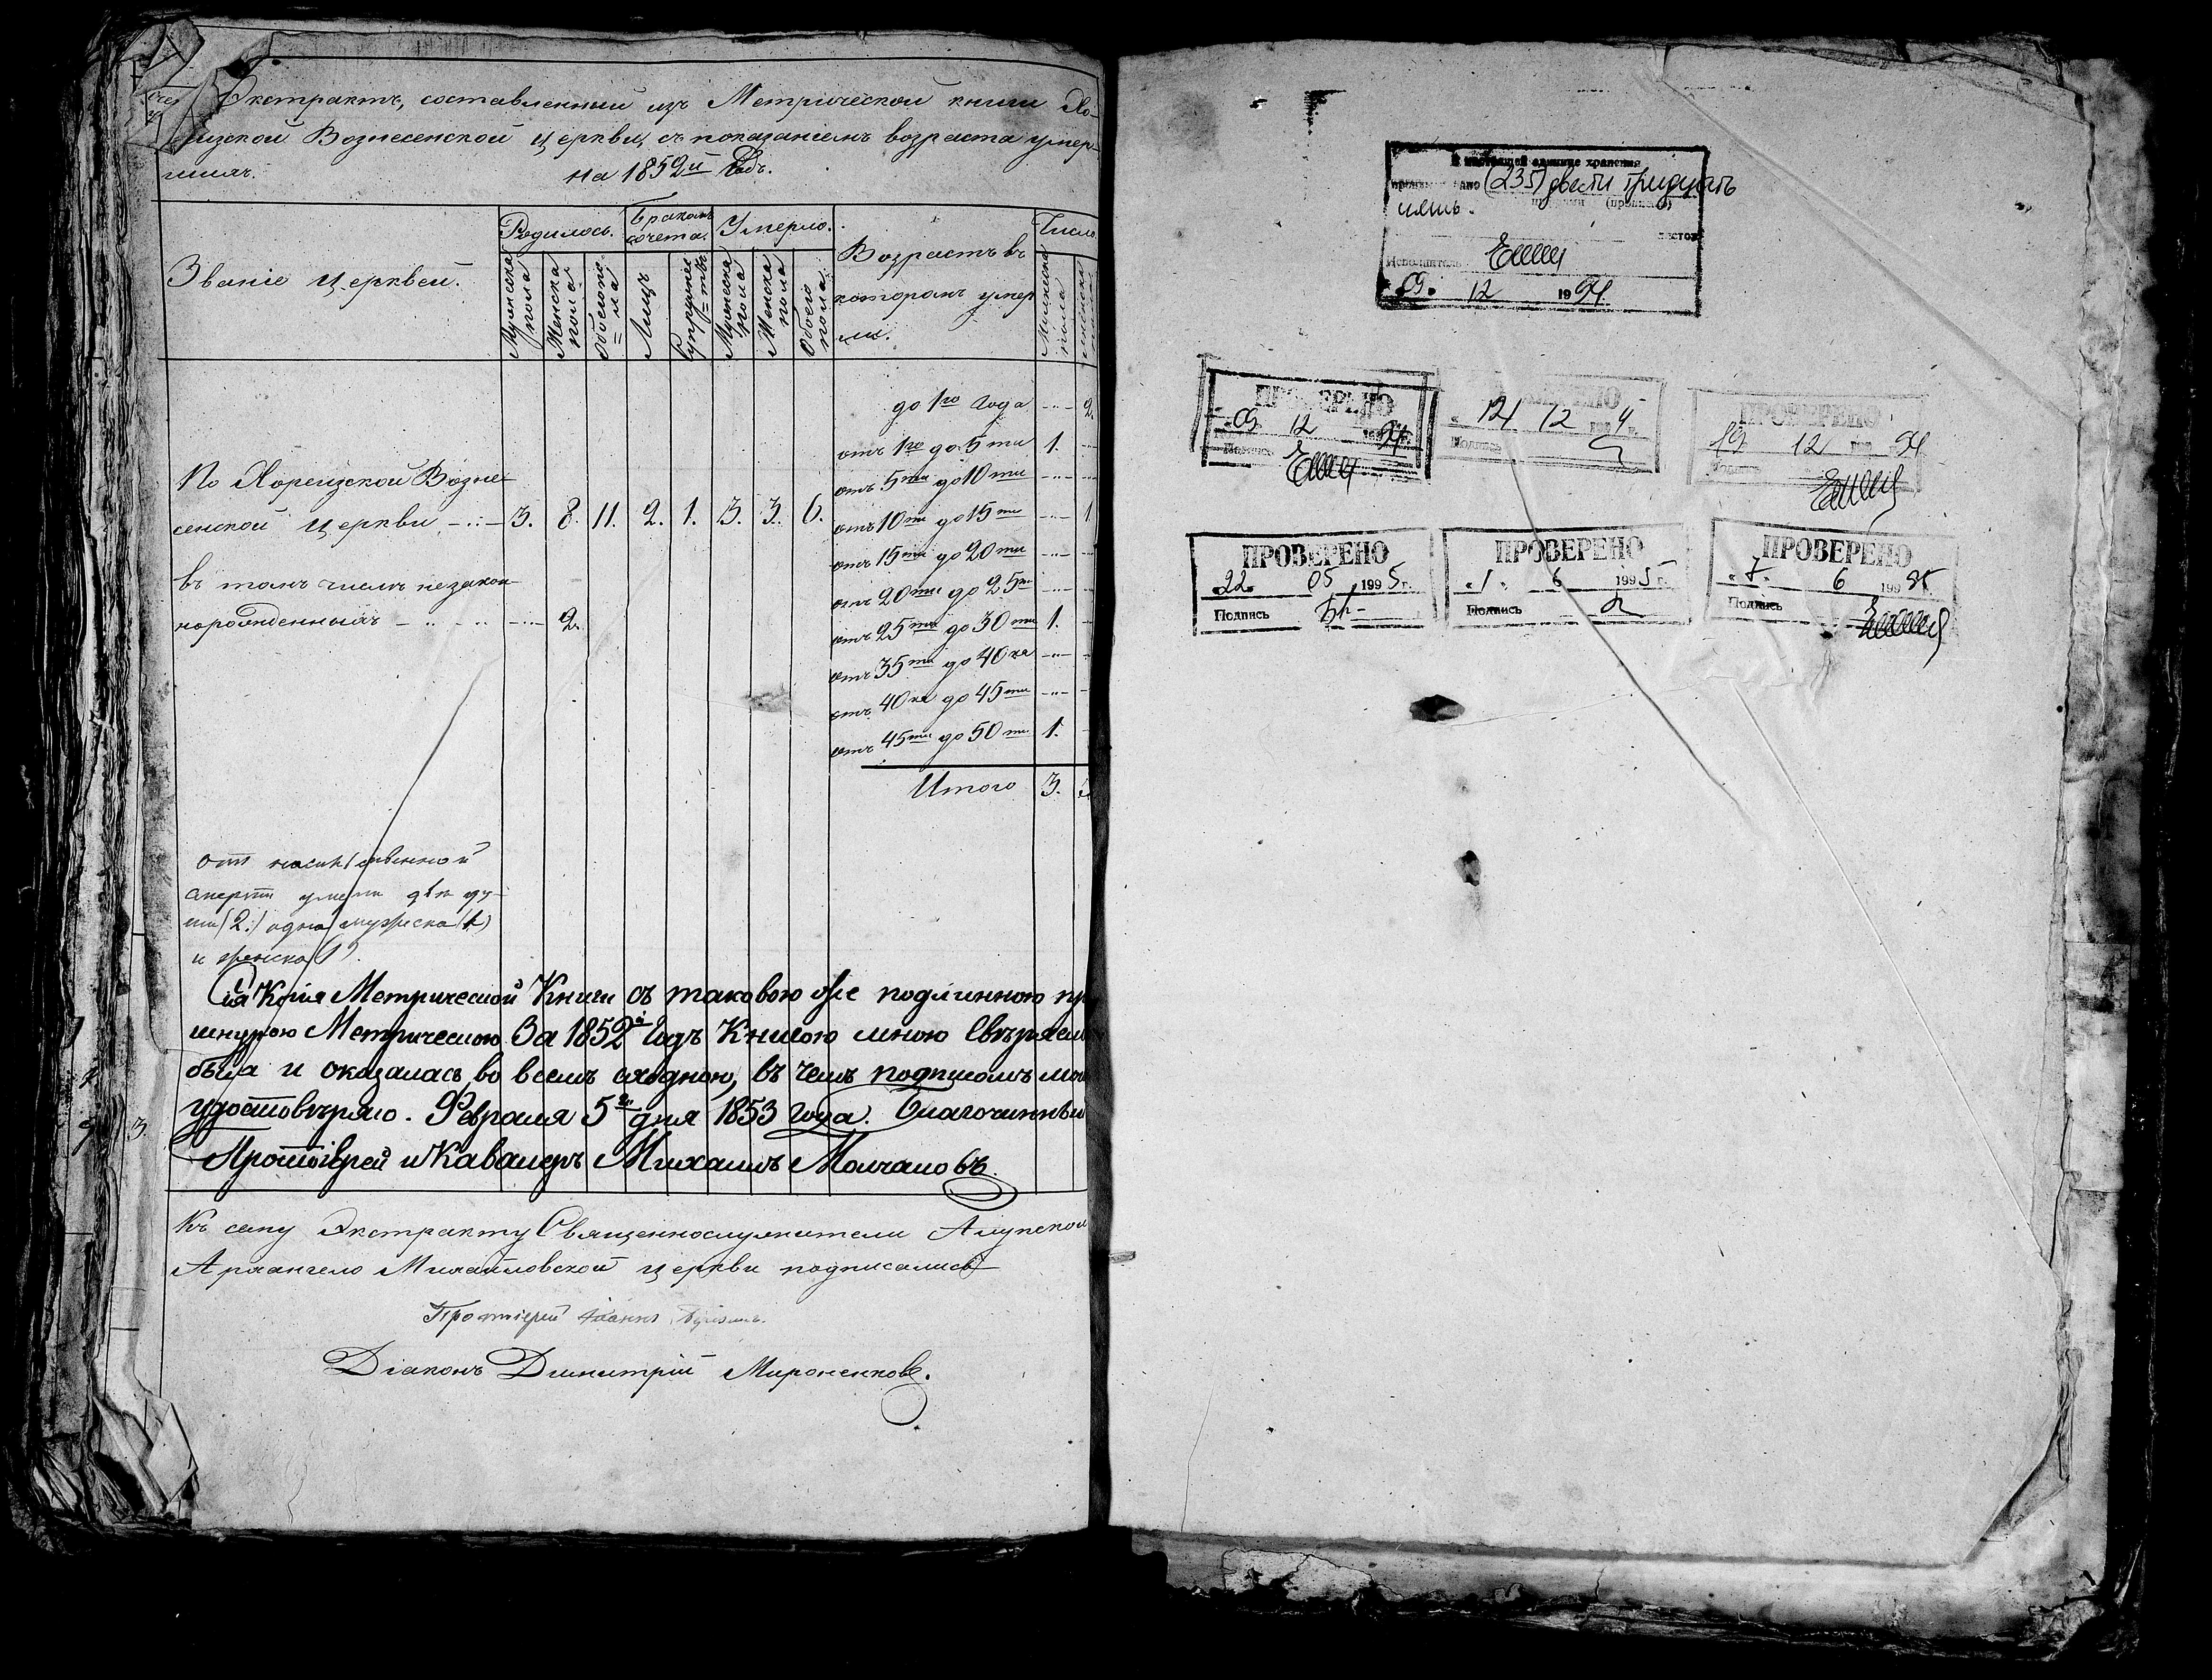 Экстрактъ, составленный изъ Метрической книги Хо-
реизской Вознесенской церкви, съ показаніемъ возраста умер-
шихъ.
на 1852й Годъ.
Званіе церквей.
Родилось.
Бракомъ сочета.
Умерло.
Возрастъ въ
которомъ умер
ли.
Число
Мужеска пола
Женска пола
Обоего по=ла
Лицъ
Супружес=твъ
Мужеска пола
Женска пола
Обоего пола
Мужеска пола
женска
По Хореизской Возне-
сенской церкви 3. 8. 11. 2. 1. 3. 3. 6.
въ томъ числѣ незакон
норожденныхъ 2.
до 1го года 2.
отъ 1го до 5ти 1.
отъ 5ти до 10ти
отъ 10ти до 15ти 1
отъ 15ти до 20ти
отъ 20ти до 25ти
отъ 25ти до 30ти 1.
отъ 35ти до 40ка
отъ 40ка до 45ти
отъ 45ти до 50ти 1.
Итого 3.
смерти двѣ ду-
ши (2.) одна мужеска (1)
и женска (1).
Сія Копія Метрической Книги съ таковою же подлинною
шнурою Метрическою За 1852й Годъ Книгою мною Свѣряема
была и оказалась во всемъ сходною, въ чемъ подписомъ мо
удостовѣряю. Февраля 5го дня 1853 года. Благочинный
Протоіерей и Кавалеръ Михаилъ Молчановъ.
Къ сему Экстракту Священнослужители Алупской
Архангело Михайловской церкви подписались
Протоіерей Іоаннъ
Діаконъ Димитрій Мироненковъ.
3.
В настоящей единице хранения
(235) двести тридцать
пять.
листов
Исполнитель
09. 12 1994
ПРОВЕРЕНО
09 12 94
Подпись
12 12
Подпись
ПРОВЕРЕНО
19 12 94
Подпись
ПРОВЕРЕНО
22 05 1995 г.
Подпись
ПРОВЕРЕНО
«1» 6 1995 г.
Подпись
ПРОВЕРЕНО
6 1995
Подпись